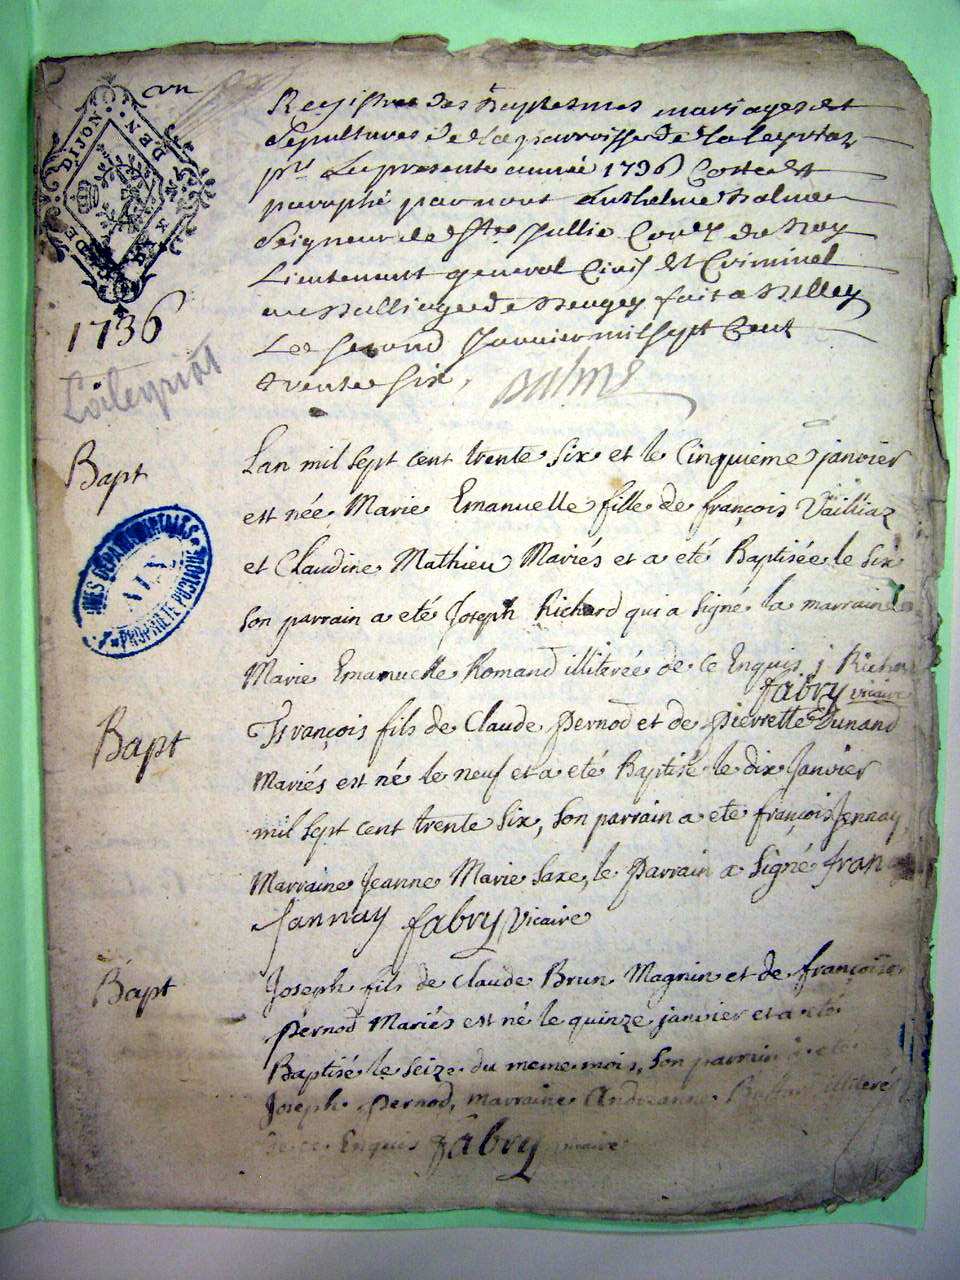 DIJON
DE
DEN
1736
Laleyriat
Registre des Baptesmes mariages et
Sepultures de la parroisse de Laleyriaz
pr La presente année 1736 Cotté et
paraphé par nous Anthelme Balme
Seigneur de Stes Jullie Coner du Roy
Lieutenant general Civil et Criminel
au Balliage de Beugey fait a Belley
Le second Janvier mil sept Cent
trente six.
Balme
Bapt
Lan mil sept cent trente six et le cinquieme janvier
est née Marie Emanuelle fille de françois Vailliaz
et Claudine Mathieu Mariés et a eté Baptisée le six
son parrain a eté Joseph Richard qui a signé la marraine
Marie Emanuelle Romand illiterée de ce Enquis j Richard
fabry vicaire
Bapt
François fils de Claude Pernod et de pierrette Dunand
Mariés est né le neuf et a eté Baptisé le dix Janvier
mil sept cent trente six, son parrain a ete françois Jennay
Marraine Jeanne Marie Saxe, le Parrain a signé fran
Jannay fabry Vicaire
Bapt
Joseph fils de Claude Brun Magnin et de françoise
Pernod Mariés est né le quinze janvier et a eté
Baptisé le seize du meme mois, son parrain a ete
Joseph Pernod, marraine Andreanne illiteré
de ce Enquis fabry vicaire
ARCHIVES DEPARTEMENTALES
AIN
PROPRIÉTÉ PUBLIQUE